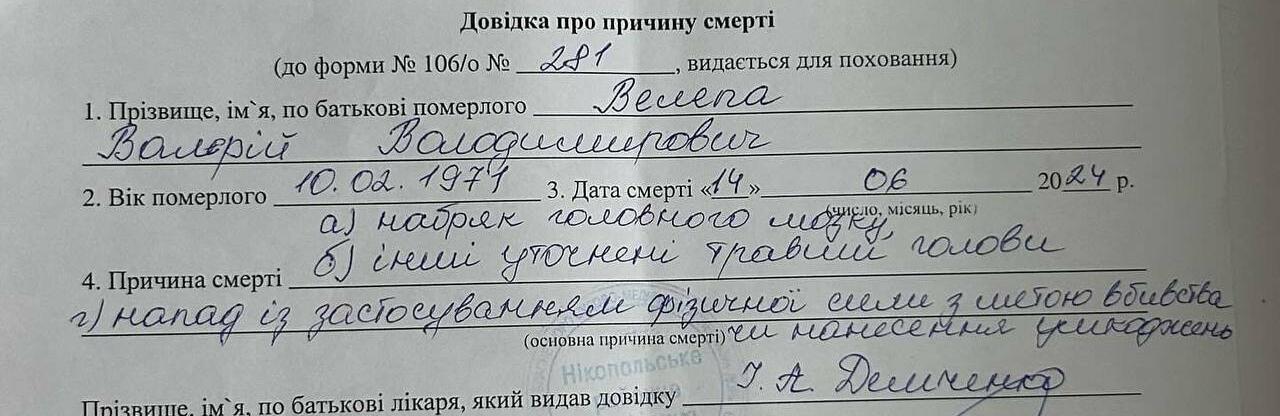 Довідка про причину смерті
(до форми № 106/о № 281, видається для поховання)
1. Прізвище, ім`я, по батькові померлого Велепа
Валерій Володимирович
2. Вік померлого 10.02.1971 3. Дата смерті «14» 06 2024 р.
(число, місяць, рік)
а) набряк головного мозку,
б) інші уточнені травми голови
4. Причина смерті
г) напад із застосуванням фізичної сили з метою вбивства
(основна причина смерті) чи нанесення ушкоджень
Нікопольське
Прізвище, ім`я, по батькові лікаря, який видав довідку І. А. Демченко